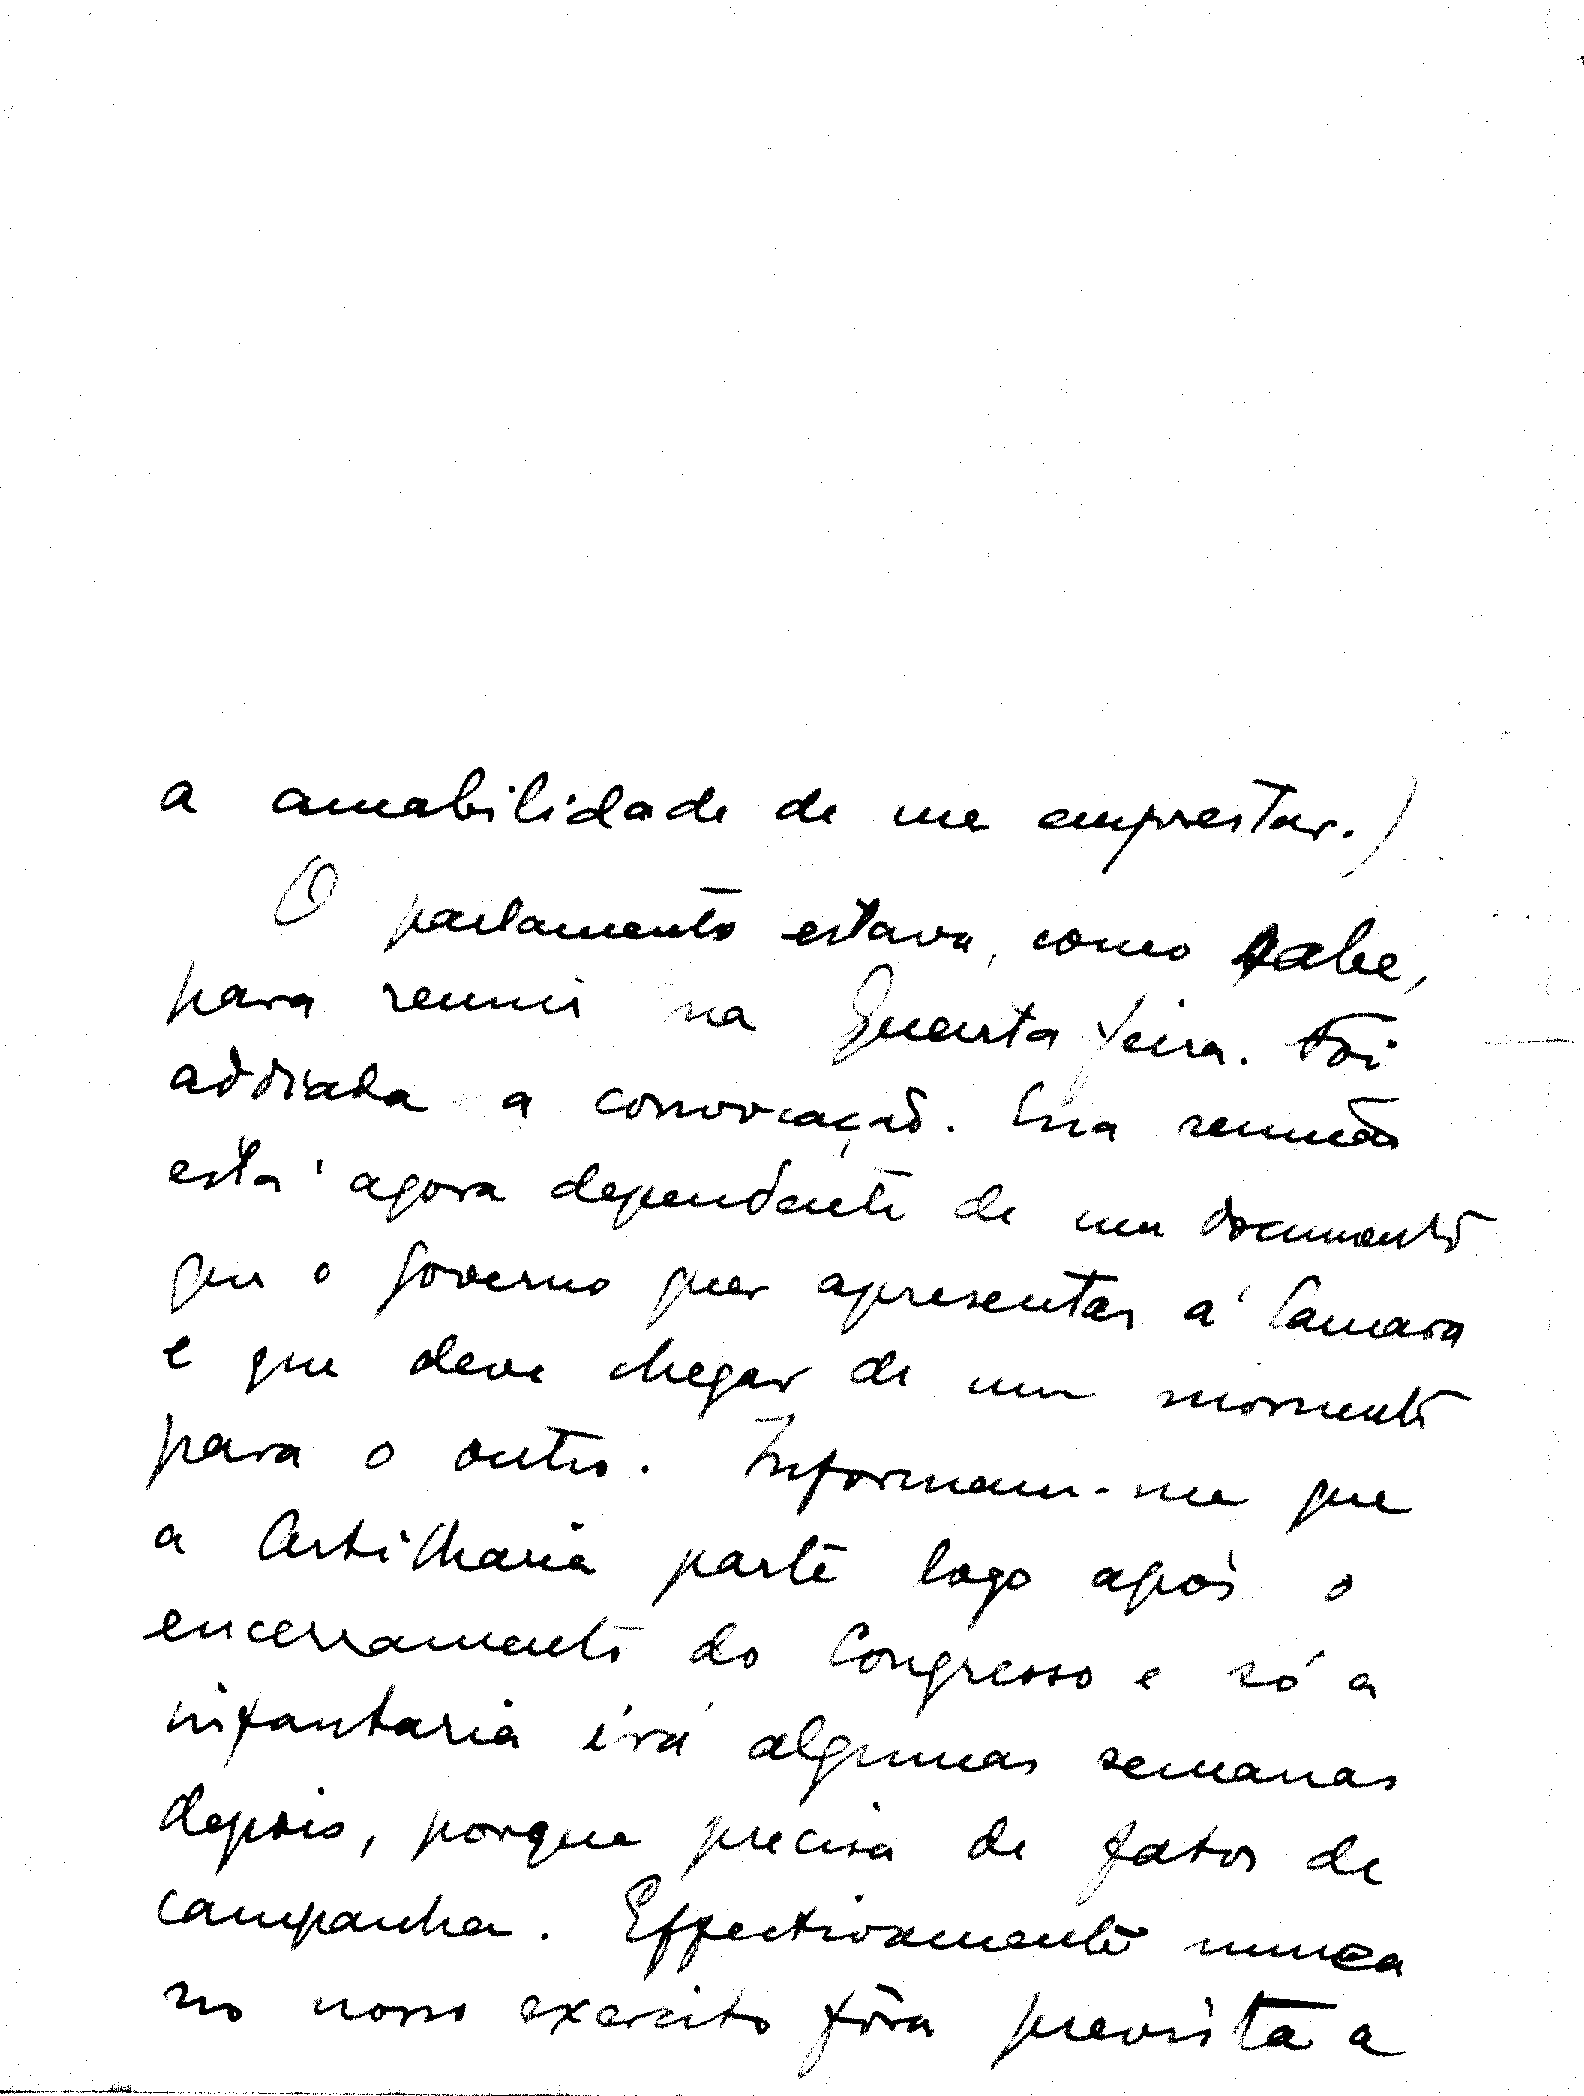 a amabilidade de me emprestar.)
O parlamento estava, como sabe,
para reunir na Quarta feira. Foi
addiada a convocação. Essa reunião
está agora dependente de um documento
que o Governo quer apresentar á Camara
e que deve chegar de um momento
para o outro. Informam-me que
a Artilharia parte logo após o
encerramento do Congresso e só a
infantaria irá algumas semanas
depois, porque precisa de fatos de
campanha. Effectivamente nunca
no nosso exercito fôra prevista a